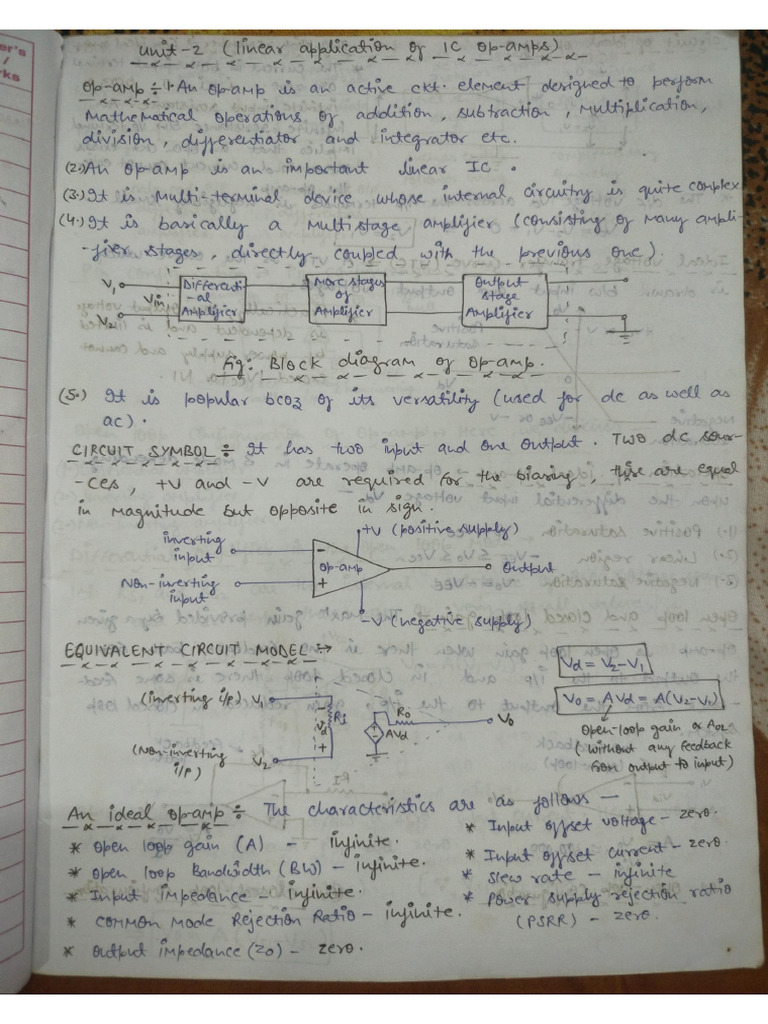 er's
/
rks
Unit-2 (linear application of IC op-amps)
Op-amp ÷ 1. An op-amp is an active ckt. element designed to perform
Mathematical operations of addition, subtraction, multiplication,
division, differentiator and integrator etc.
(2.) An op-amp is an important linear IC.
(3.) It is Multi-terminal device whose internal circuitry is quite complex
(4.) It is basically a Multistage amplifier (consisting of many ampli-
-fier stages, directly coupled with the previous one).
V1
Vin
V2
Differenti-
al
Amplifier
More stages
of
Amplifier
Output
stage
Amplifier
Fig: Block diagram of op-amp.
(5.) It is popular bcoz of its versatility (used for dc as well as
ac).
CIRCUIT SYMBOL ÷ It has two input and one output. Two dc sour-
-ces, +V and -V are required for the biasing, these are equal
in magnitude but opposite in sign.
+V (positive supply)
inverting
input
-
op-amp
output
Non-inverting
input
+
-V (negative supply)
EQUIVALENT CIRCUIT MODEL :→
Vd = V2-V1
Vo = AVd = A(V2-V1)
(inverting i/p) V1
-
Vd
+
Ri
Ro
+
-
AVd
Vo
(Non-inverting
i/p)
V2
open-loop gain or AOL
(without any feedback
from output to input)
An ideal op-amp ÷ The characteristics are as follows —
* Open loop gain (A) - infinite.
* Open loop Bandwidth (BW) - infinite.
* Input impedance - infinite.
* Common Mode Rejection Ratio - infinite.
* output impedance (Zo) - zero.
* Input offset voltage - zero.
* Input offset current - zero.
* slew rate - infinite
* Power supply rejection ratio
(PSRR) - zero.